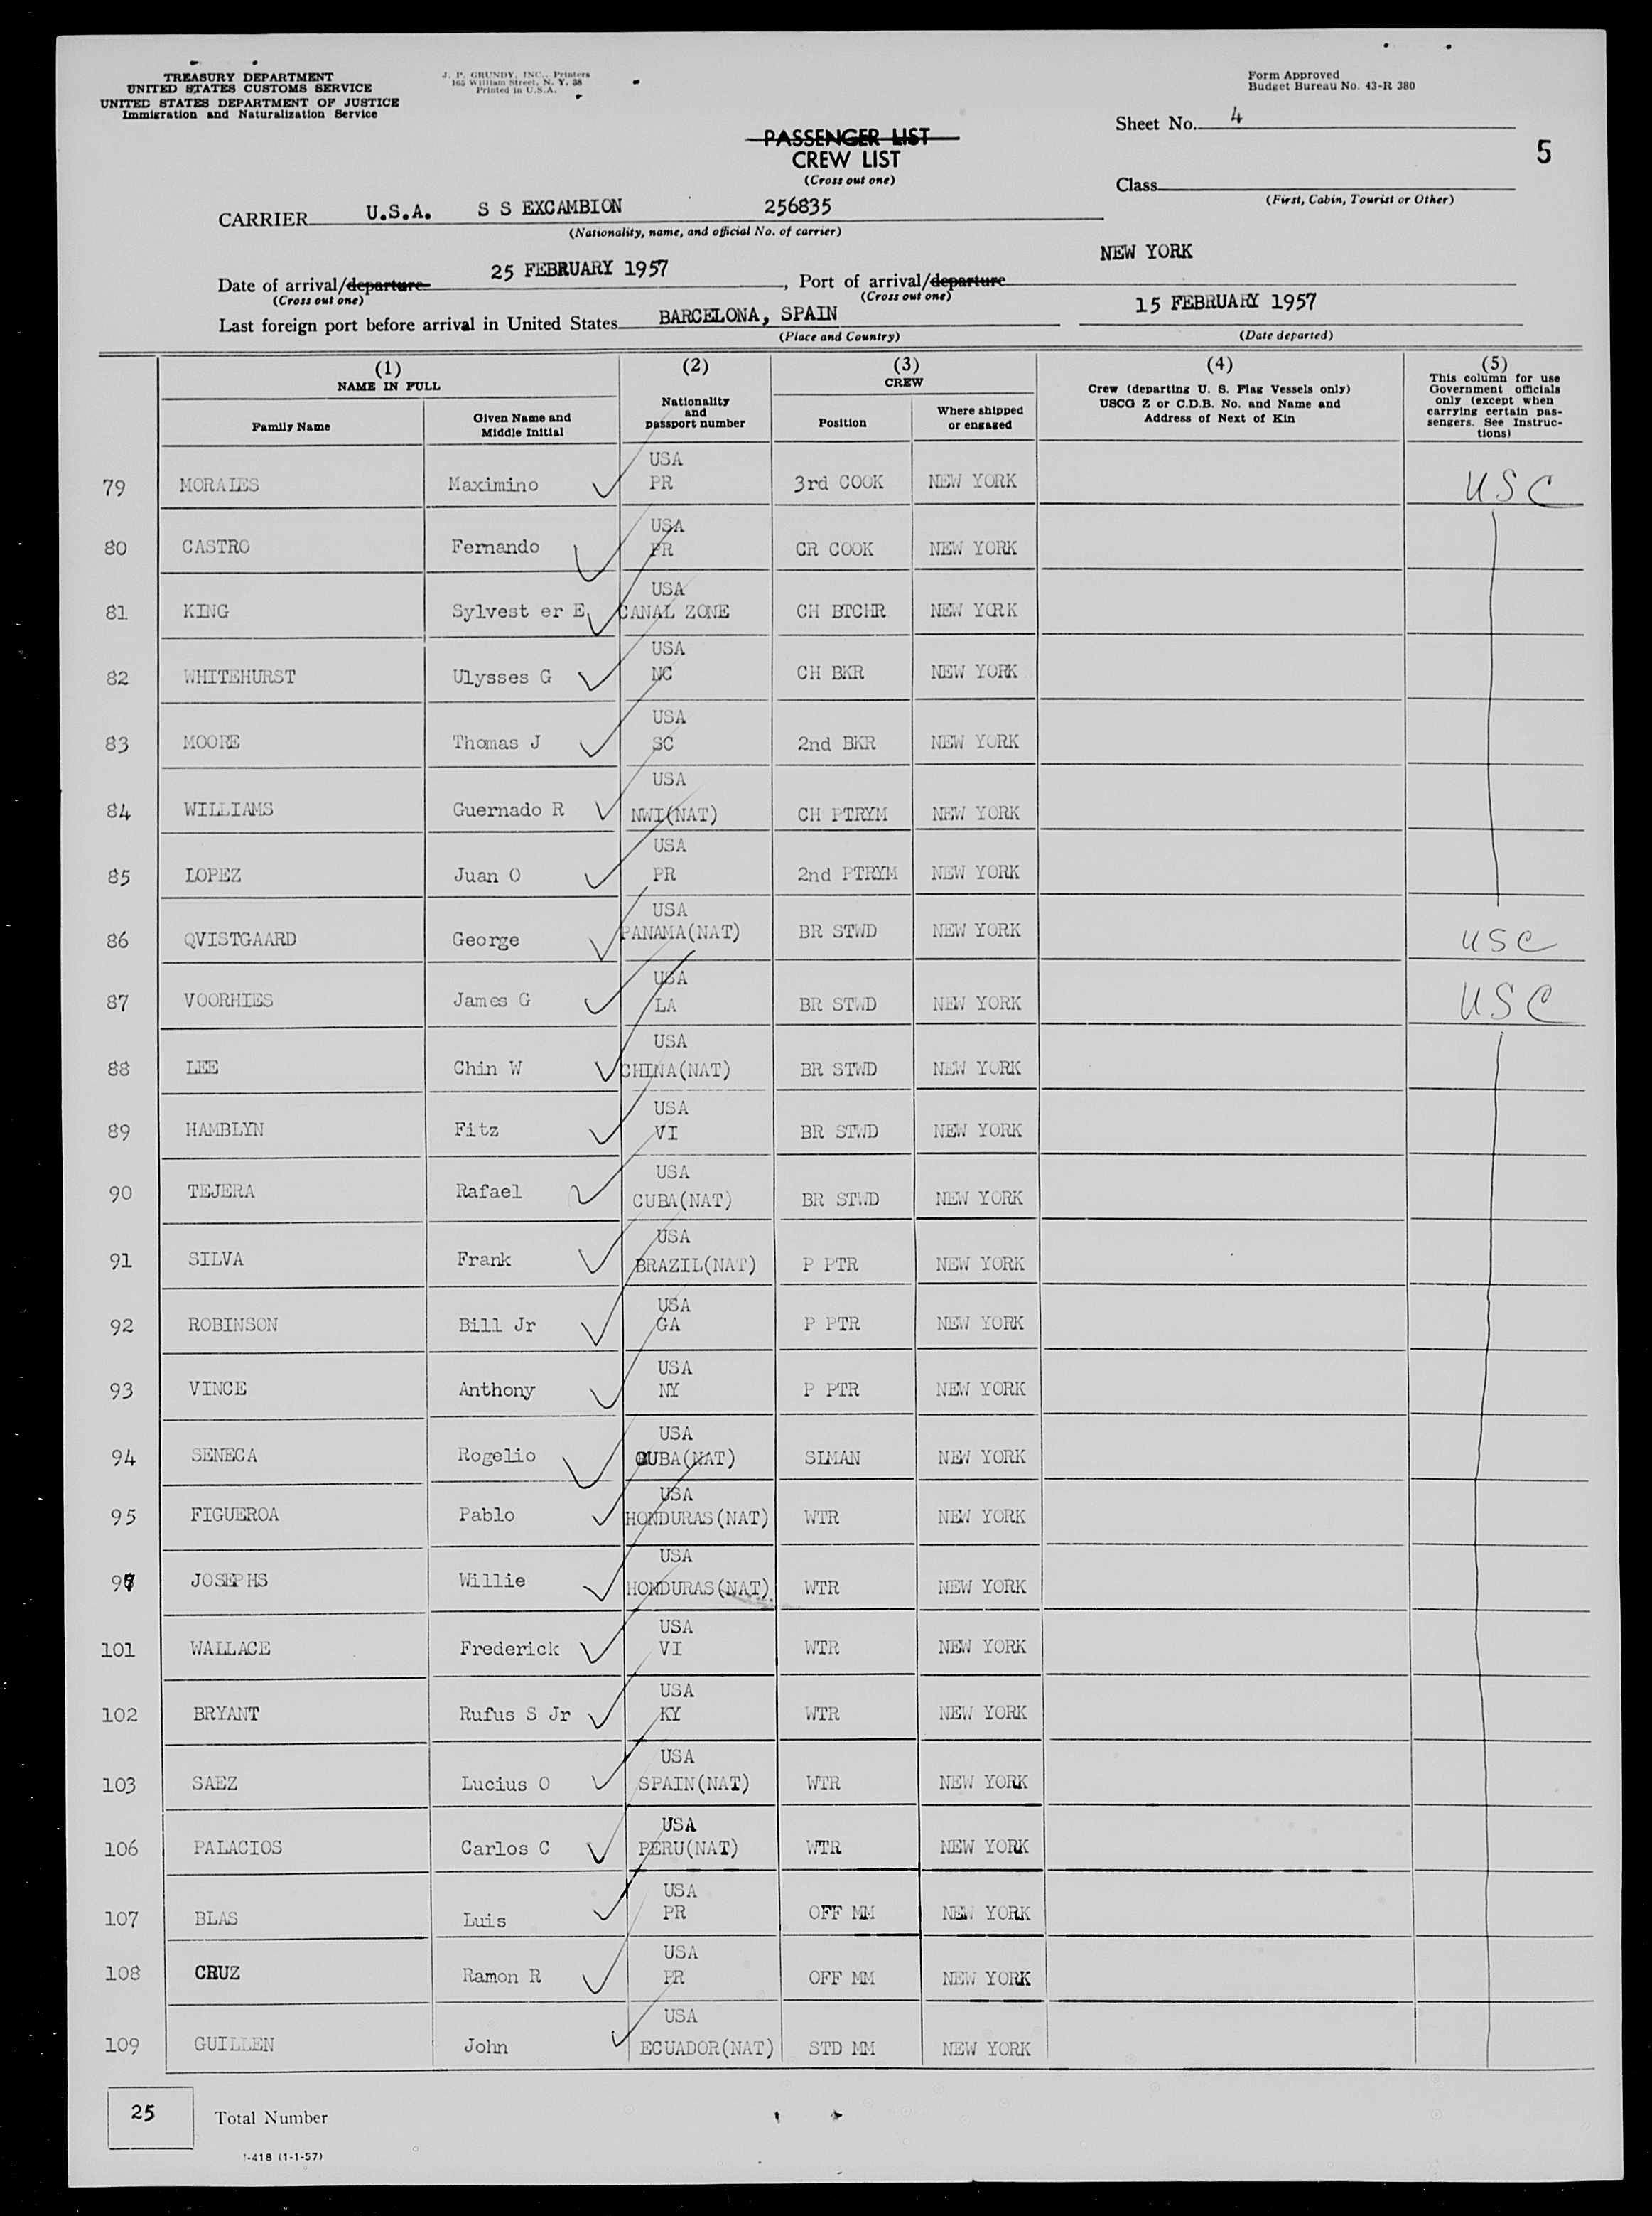 TREASURY DEPARTMENT
UNITED STATES CUSTOMS SERVICE
UNITED STATES DEPARTMENT OF JUSTICE
Immigration and Naturalization Service
J. P. GRUNDY, INC., Printers
165 William Street, N. Y. 38
Printed in U.S.A.
Form Approved
Budget Bureau No. 43-R 380
PASSENGER LIST
CREW LIST
(Cross out one)
Sheet No. 4
5
Class
(First, Cabin, Tourist or Other)
CARRIER U.S.A. S S EXCAMBION 256835
(Nationality, name, and official No. of carrier)
Date of arrival/departure 25 FEBRUARY 1957, Port of arrival/departure NEW YORK
(Cross out one) (Cross out one)
Last foreign port before arrival in United States BARCELONA, SPAIN 15 FEBRUARY 1957
(Place and Country) (Date departed)
(1)
NAME IN FULL
Family Name
Given Name and
Middle Initial
(2)
Nationality
and
passport number
(3)
CREW
Position
Where shipped
or engaged
(4)
Crew (departing U. S. Flag Vessels only)
USCG Z or C.D.B. No. and Name and
Address of Next of Kin
(5)
This column for use
Government officials
only (except when
carrying certain pas-
sengers. See Instruc-
tions)
79 MORALES Maximino USA PR 3rd COOK NEW YORK USC
80 CASTRO Fernando USA PR CR COOK NEW YORK
81 KING Sylvest er E USA CANAL ZONE CH BTCHR NEW YORK
82 WHITEHURST Ulysses G USA NC CH BKR NEW YORK
83 MOORE Thomas J USA SC 2nd BKR NEW YORK
84 WILLIAMS Guernado R USA NWI(NAT) CH PTRYM NEW YORK
85 LOPEZ Juan O USA PR 2nd PTRYM NEW YORK
86 QVISTGAARD George USA PANAMA(NAT) BR STWD NEW YORK USC
87 VOORHIES James G USA LA BR STWD NEW YORK USC
88 LEE Chin W USA CHINA(NAT) BR STWD NEW YORK
89 HAMBLYN Fitz USA VI BR STWD NEW YORK
90 TEJERA Rafael USA CUBA(NAT) BR STWD NEW YORK
91 SILVA Frank USA BRAZIL(NAT) P PTR NEW YORK
92 ROBINSON Bill Jr USA GA P PTR NEW YORK
93 VINCE Anthony USA NY P PTR NEW YORK
94 SENECA Rogelio USA CUBA(NAT) SLMAN NEW YORK
95 FIGUEROA Pablo USA HONDURAS(NAT) WTR NEW YORK
97 JOSEPHS Willie USA HONDURAS(NAT) WTR NEW YORK
101 WALLACE Frederick USA VI WTR NEW YORK
102 BRYANT Rufus S Jr USA KY WTR NEW YORK
103 SAEZ Lucius O USA SPAIN(NAT) WTR NEW YORK
106 PALACIOS Carlos C USA PERU(NAT) WTR NEW YORK
107 BLAS Luis USA PR OFF MM NEW YORK
108 CRUZ Ramon R USA PR OFF MM NEW YORK
109 GUILLEN John USA ECUADOR(NAT) STD MM NEW YORK
25 Total Number
I-418 (1-1-57)